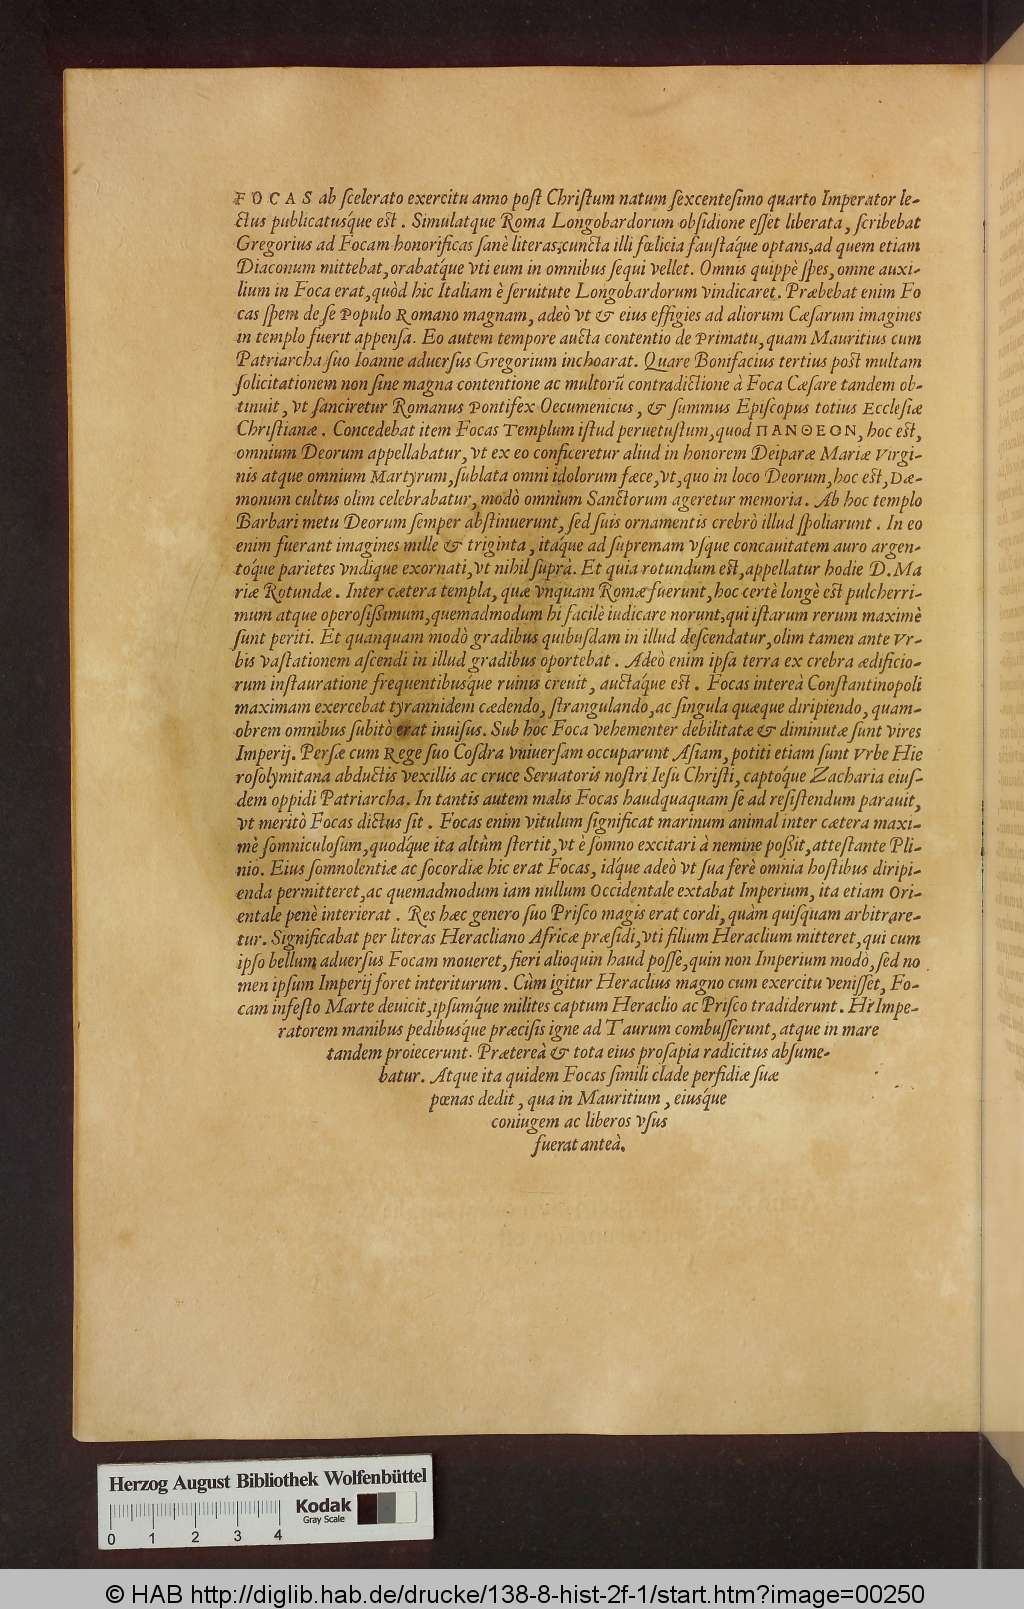 FOCAS ab ſcelerato exercitu anno poſt Chriſtum natum ſexcenteſimo quarto Imperator le-
ctus publicatusq́ue eſt. Simulatque Roma Longobardorum obſidione eſſet liberata, ſcribebat
Gregorius ad Focam honorificas ſanè literas; cuncta illi fœlicia fauſtaq́ue optans, ad quem etiam
Diaconum mittebat, orabatq́ue vti eum in omnibus ſequi vellet. Omnis quippè ſpes, omne auxi-
lium in Foca erat, quòd hic Italiam è ſeruitute Longobardorum vindicaret. Præbebat enim Fo
cas ſpem de ſe Populo Romano magnam, adeò vt & eius effigies ad aliorum Cæſarum imagines
in templo fuerit appenſa. Eo autem tempore aucta contentio de Primatu, quam Mauritius cum
Patriarcha ſuo Ioanne aduerſus Gregorium inchoarat. Quare Bonifacius tertius poſt multam
ſolicitationem non ſine magna contentione ac multorũ contradictione à Foca Cæſare tandem ob-
tinuit, vt ſanciretur Romanus Pontifex Oecumenicus, & ſummus Epiſcopus totius Eccleſiæ
Chriſtianæ. Concedebat item Focas Templum iſtud peruetuſtum, quod ΠΑΝΘΕΟΝ, hoc eſt,
omnium Deorum appellabatur, vt ex eo conficeretur aliud in honorem Deiparæ Mariæ Virgi-
nis atque omnium Martyrum, ſublata omni idolorum fæce, vt, quo in loco Deorum, hoc eſt, Dæ-
monum cultus olim celebrabatur, modò omnium Sanctorum ageretur memoria. Ab hoc templo
Barbari metu Deorum ſemper abſtinuerunt, ſed ſuis ornamentis crebrò illud ſpoliarunt. In eo
enim fuerant imagines mille & triginta, itaq́ue ad ſupremam vſque concauitatem auro argen-
toq́ue parietes vndique exornati, vt nihil ſuprà. Et quia rotundum eſt, appellatur hodie D. Ma
riæ Rotundæ. Inter cætera templa, quæ vnquam Romæ fuerunt, hoc certè longè eſt pulcherri-
mum atque operoſißimum, quemadmodum hi facilè iudicare norunt, qui iſtarum rerum maximè
ſunt periti. Et quanquam modò gradibus quibuſdam in illud deſcendatur, olim tamen ante Vr-
bis vaſtationem aſcendi in illud gradibus oportebat. Adeò enim ipſa terra ex crebra ædificio-
rum inſtauratione frequentibusq́ue ruinis creuit, auctaq́ue eſt. Focas intereà Conſtantinopoli
maximam exercebat tyrannidem cædendo, ſtrangulando, ac ſingula quæque diripiendo, quam-
obrem omnibus ſubitò erat inuiſus. Sub hoc Foca vehementer debilitatæ & diminutæ ſunt vires
Imperij. Perſæ cum Rege ſuo Coſdra vniuerſam occuparunt Aſiam, potiti etiam ſunt Vrbe Hie
roſolymitana abductis vexillis ac cruce Seruatoris noſtri Ieſu Chriſti, captoq́ue Zacharia eiuſ-
dem oppidi Patriarcha. In tantis autem malis Focas haudquaquam ſe ad reſiſtendum parauit,
vt meritò Focas dictus ſit. Focas enim vitulum ſignificat marinum animal inter cætera maxi-
mè ſomniculoſum, quodq́ue ita altùm ſtertit, vt è ſomno excitari à nemine poßit, atteſtante Pli-
nio. Eius ſomnolentiæ ac ſocordiæ hic erat Focas, idq́ue adeò vt ſua ferè omnia hoſtibus diripi-
enda permitteret, ac quemadmodum iam nullum Occidentale extabat Imperium, ita etiam Ori-
entale penè interierat. Res hæc genero ſuo Priſco magis erat cordi, quàm quiſquam arbitrare-
tur. Significabat per literas Heracliano Africæ præſidi, vti filium Heraclium mitteret, qui cum
ipſo bellum aduerſus Focam moueret, fieri alioquin haud poſſe, quin non Imperium modò, ſed no
men ipſum Imperij foret interiturum. Cùm igitur Heraclius magno cum exercitu veniſſet, Fo-
cam infeſto Marte deuicit, ipſumq́ue milites captum Heraclio ac Priſco tradiderunt. Hi Impe-
ratorem manibus pedibusq́ue præciſis igne ad Taurum combuſſerunt, atque in mare
tandem proiecerunt. Prætereà & tota eius proſapia radicitus abſume-
batur. Atque ita quidem Focas ſimili clade perfidiæ ſuæ
pœnas dedit, qua in Mauritium, eiusq́ue
coniugem ac liberos vſus
fuerat anteà.
Herzog August Bibliothek Wolfenbüttel
Kodak
Gray Scale
0 1 2 3 4
© HAB http://diglib.hab.de/drucke/138-8-hist-2f-1/start.htm?image=00250